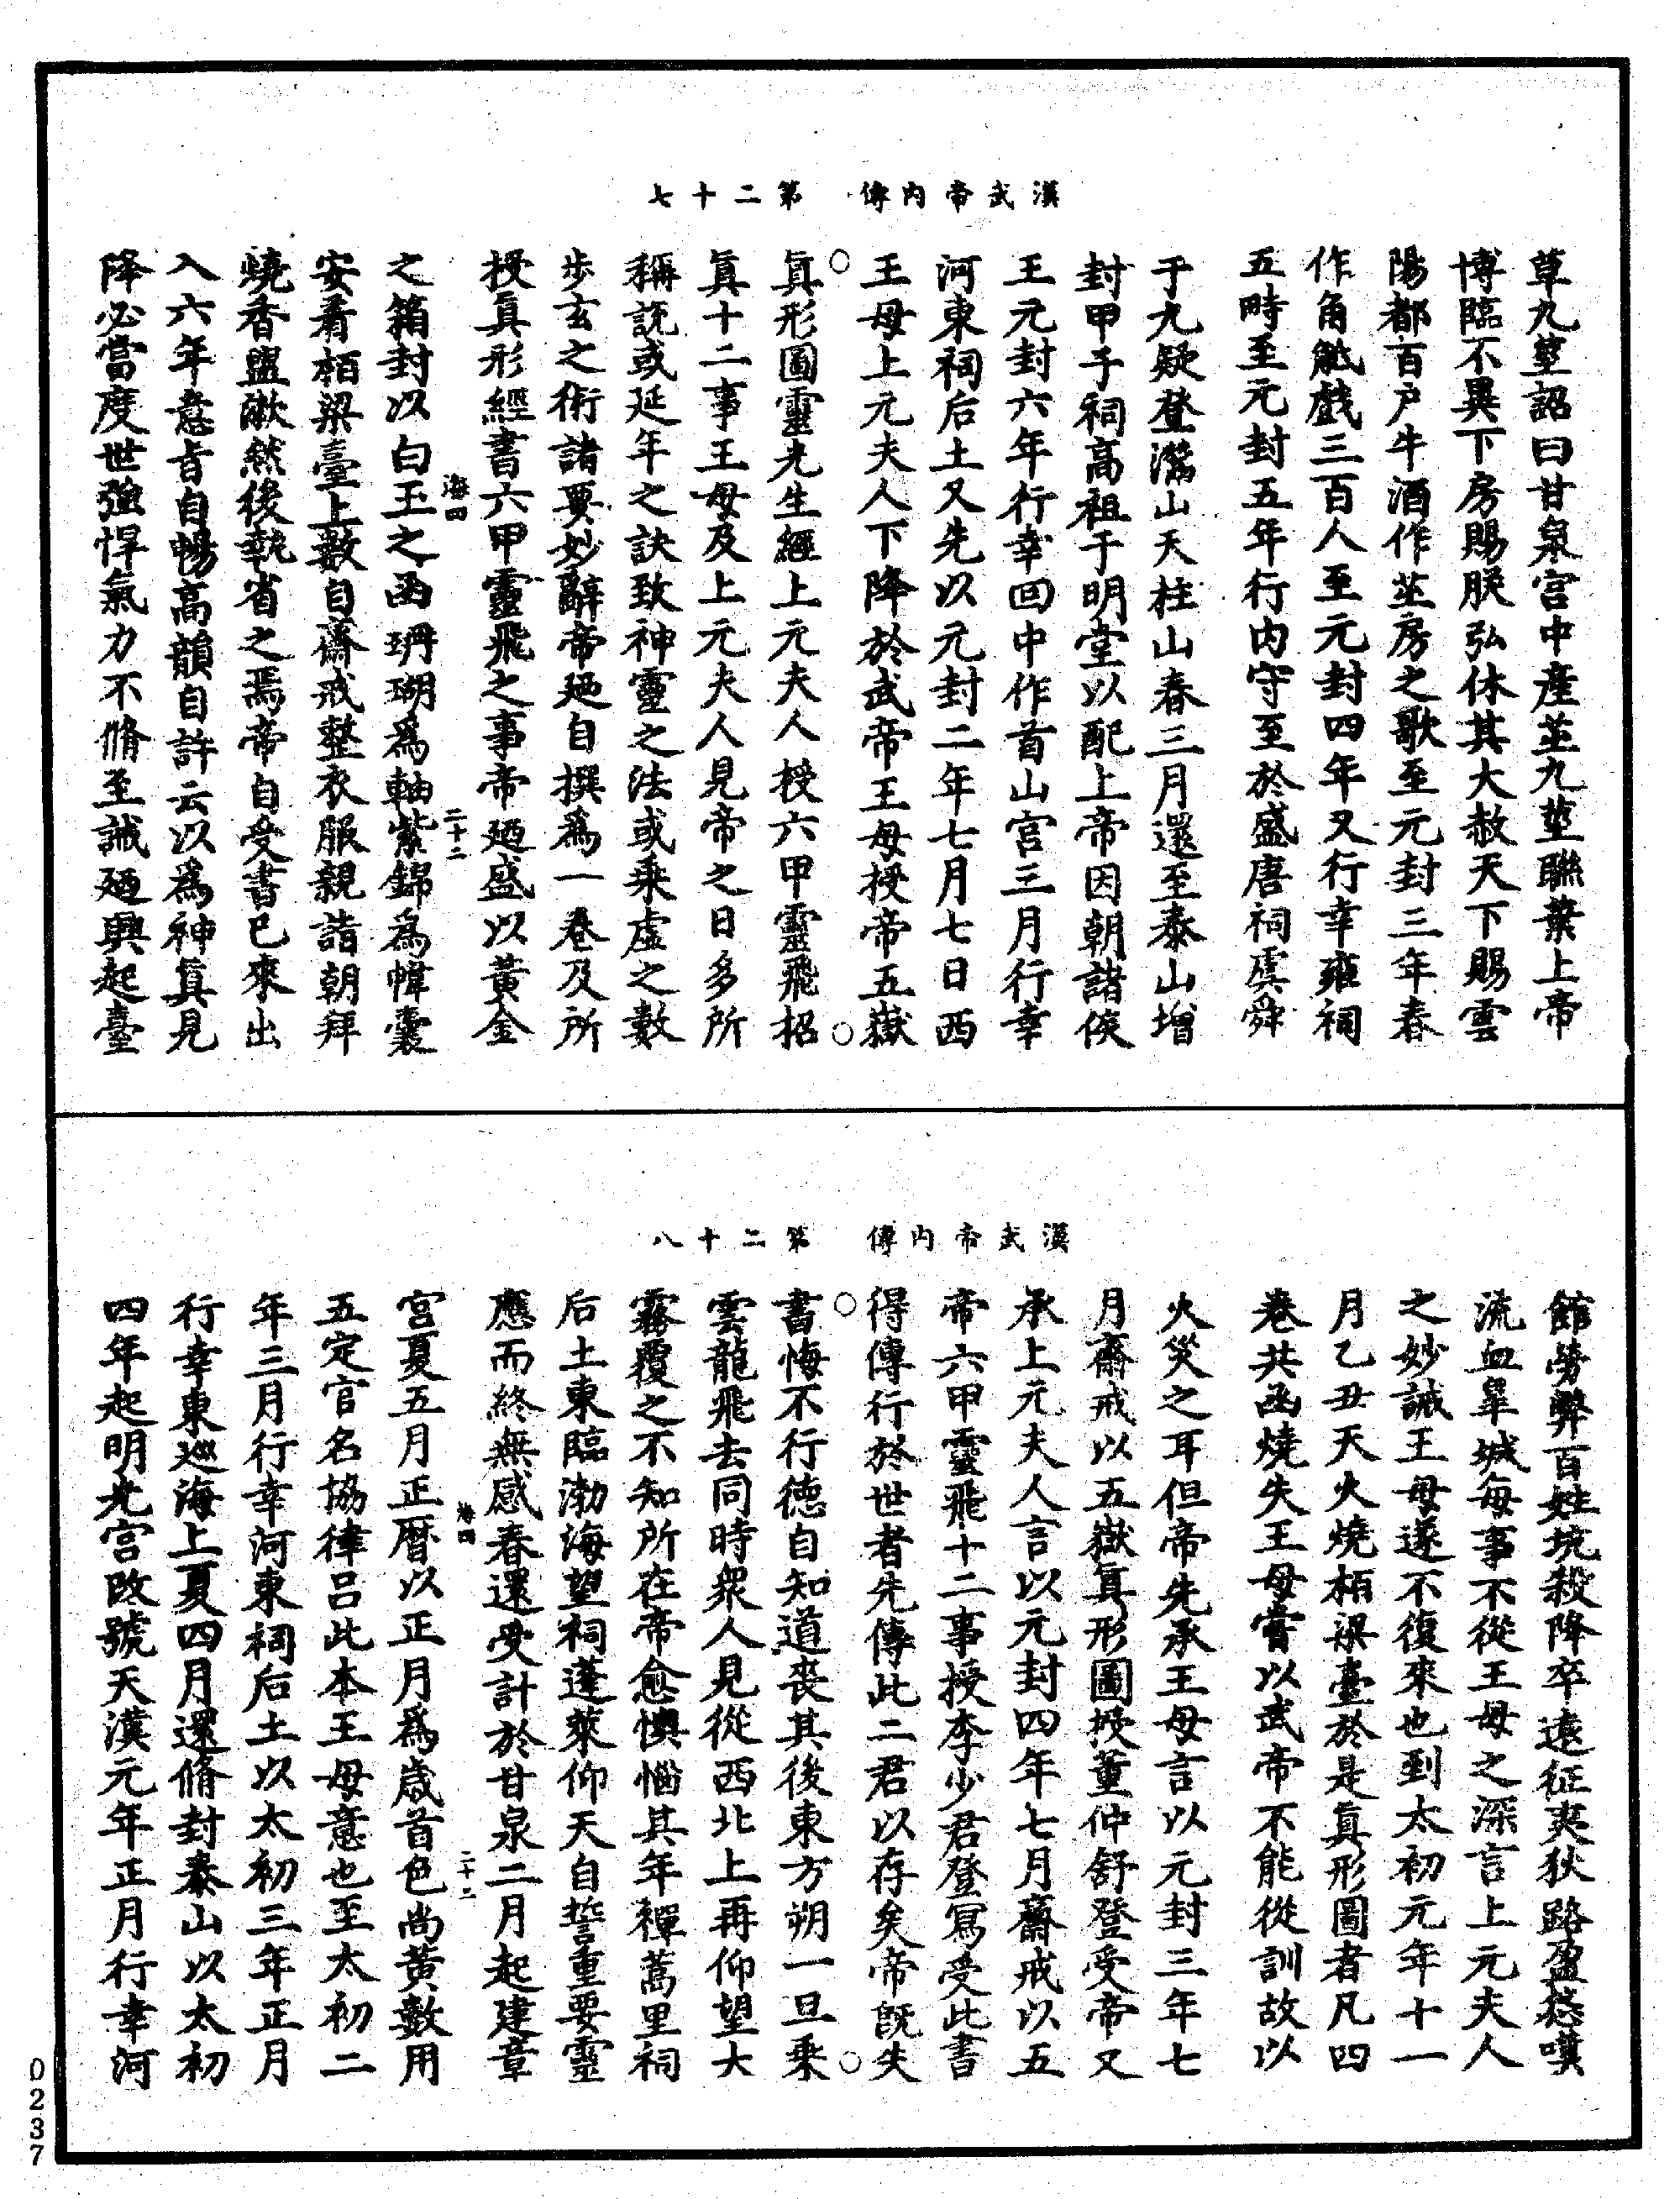 漢武帝内傳　第二十七
草九莖詔曰甘泉宫中產芝九莖聯葉上帝
博臨不異下房賜朕弘休其大赦天下賜雲
陽都百户牛酒作芝房之歌至元封三年春
作角觝戲三百人至元封四年又行幸雍祠
五畤至元封五年行内守至於盛唐祠虞舜
于九疑登灊山天柱山春三月還至泰山增
封甲子祠高祖于明堂以配上帝因朝諸侯
王元封六年行幸回中作首山宫三月行幸
河東祠后土又先以元封二年七月七日西
王母上元夫人下降於武帝王母授帝五嶽
真形圖靈光生經上元夫人授六甲靈飛招
真十二事王母及上元夫人見帝之日多所
稱説或延年之訣致神靈之法或乘虚之數
步玄之術諸要妙辭帝廼自撰爲一卷及所
授真形經書六甲靈飛之事帝廼盛以黄金
海四　二十二
之箱封以白玉之函珊瑚爲軸紫錦爲幃囊
安着栢梁臺上數自齋戒整衣服親詣朝拜
燒香盥漱然後執省之焉帝自受書已來出
入六年意旨自暢高韻自許云以爲神真見
降必當度世強悍氣力不脩至誡廼興起臺
漢武帝内傳　第二十八
館勞弊百姓坑殺降卒遠征夷狄路盈愁嘆
流血臯城每事不從王母之深言上元夫人
之妙誡王母遂不復來也到太初元年十一
月乙丑天火燒栢梁臺於是真形圖者凡四
卷共函燒失王母嘗以武帝不能從訓故以
火災之耳但帝先承王母言以元封三年七
月齋戒以五嶽真形圖授董仲舒登受帝又
承上元夫人言以元封四年七月齋戒以五
帝六甲靈飛十二事授李少君登寫受此書
得傳行於世者先傳此二君以存矣帝既失
書悔不行德自知道喪其後東方朔一旦乘
雲龍飛去同時衆人見從西北上再仰望大
霧覆之不知所在帝愈懊惱其年禪蒿里祠
后土東臨渤海望祠蓬萊仰天自誓重要靈
應而終無感春還受計於甘泉二月起建章
海四　二十二
宫夏五月正曆以正月爲歲首色尚黄數用
五定官名協律吕此本王母意也至太初二
年三月行幸河東祠后土以太初三年正月
行幸東巡海上夏四月還脩封泰山以太初
四年起明光宫改號天漢元年正月行幸河
0237